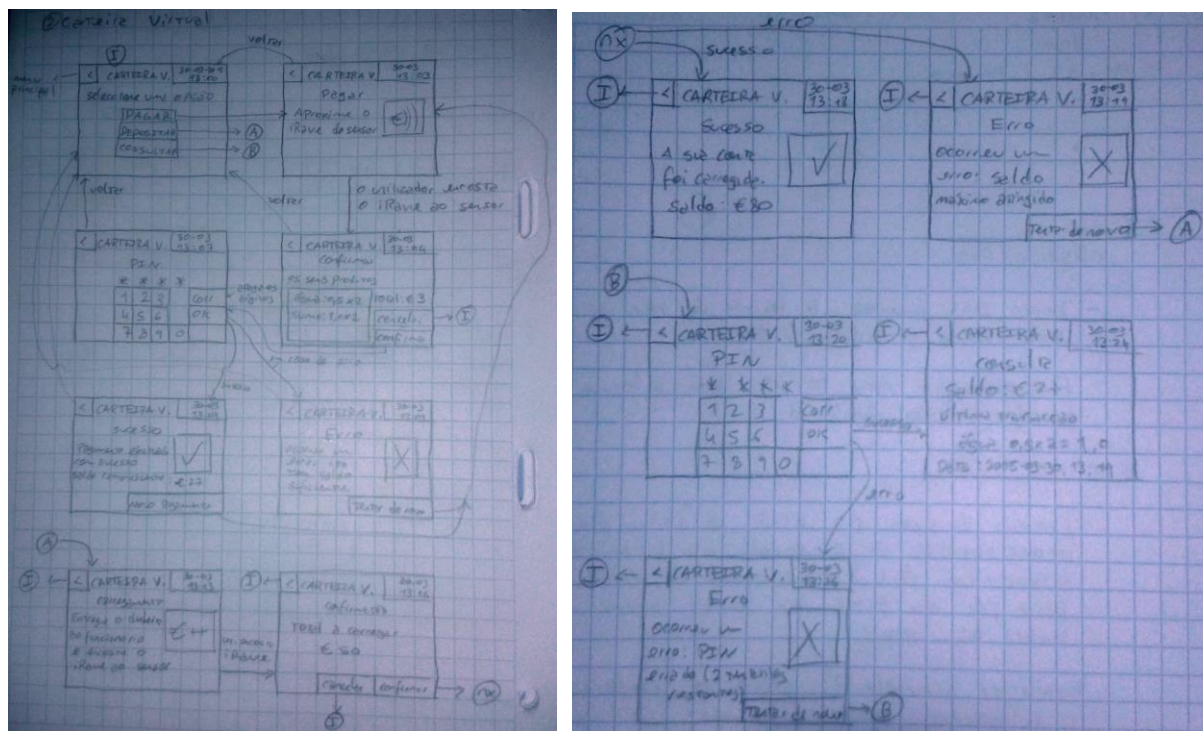 ② Carteira Virtual
I
volter
menu
principal
< CARTEIRA V.
Selecione uma opção
PAGAR
DEPOSITAR
CONSULTAR
A
B
< CARTEIRA V. 30-03 13:03
Pagar
Aproxime o
iRave do sensor
€
volter
volter
o utilizador encosta
o iRave ao sensor
< CARTEIRA V. 30-03
PIN
* * * *
1 2 3 corr
4 5 6 OK
7 8 9 0
< CARTEIRA V. 30-03 13:04
confirmar
os seus produtos
total: €3
cancela.
confirma
I
< CARTEIRA V.
sucesso
com sucesso
€27
novo pagamento
< CARTEIRA V.
Erro
Tentar de novo
A
I
< CARTEIRA V. 30-03
Entregue o dinheiro
ao funcionário
e encoste o
iRave ao sensor
€++
iRave
I
< CARTEIRA V. 30-03
confirmação
Total a carregar
€50
cancelar confirmar
nx
I
erro
nx
sucesso
I
< CARTEIRA V. 30-03 13:18
Sucesso
A sua conta
foi carregada.
Saldo: €80
I
< CARTEIRA V. 30-03 13:19
Erro
ocorreu um
erro: saldo
máximo atingido
Tentar de novo
A
B
I
< CARTEIRA V. 30-03 13:20
PIN
* * * *
1 2 3 corr
4 5 6 OK
7 8 9 0
sucesso
erro
I
< CARTEIRA V. 30-03 13:24
consulta
Saldo: €27
última transacção
I
< CARTEIRA V. 30-03 13:26
Erro
ocorreu um
erro: PIN
errado (2 tentativas
restantes)
Tentar de novo
B